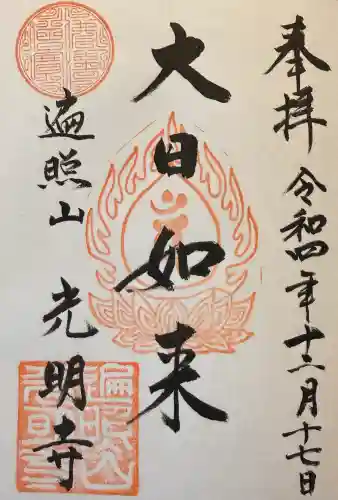 奉拝 令和四年十二月十七日
大日如来
遍照山 光明寺